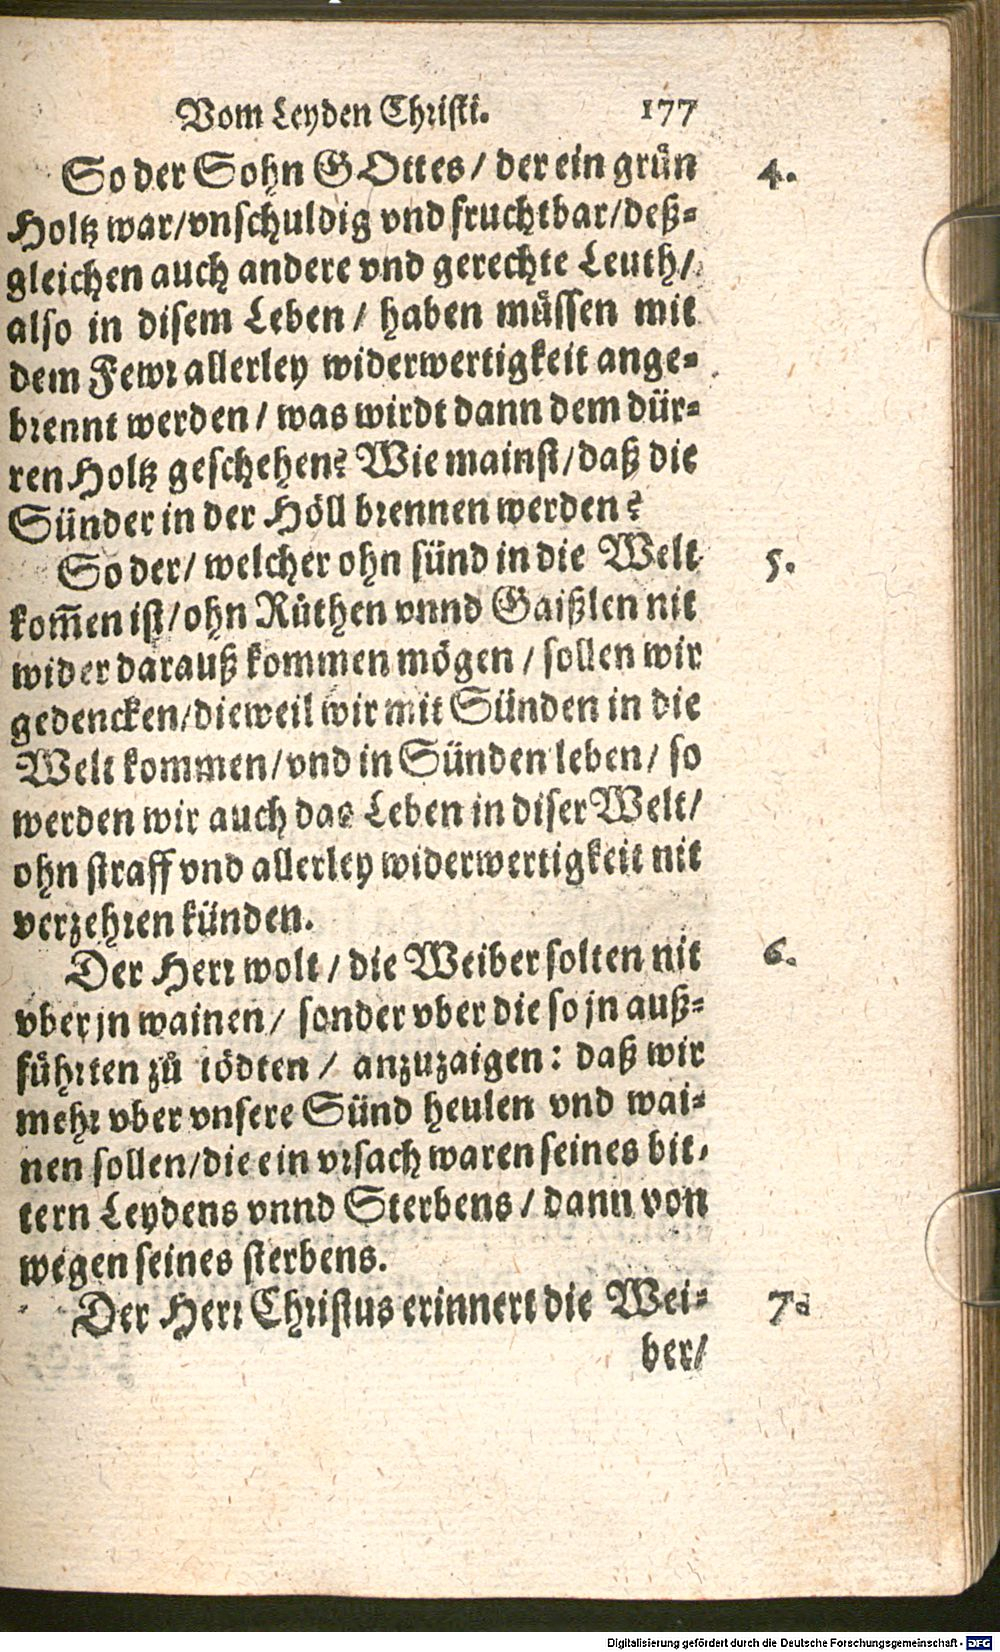 Vom Leyden Christi. 177
So der Sohn GOttes / der ein grün 4.
Holtz war/vnschuldig vnd fruchtbar/deß-
gleichen auch andere vnd gerechte Leuth/
also in disem Leben / haben müssen mit
dem Fewr allerley widerwertigkeit ange-
brennt werden / was wirdt dann dem dür-
ren Holtz geschehen? Wie mainst/daß die
Sünder in der Höll brennen werden?
So der/ welcher ohn sünd in die Welt 5.
kom̃en ist/ohn Rüthen vnnd Gaißlen nit
wider darauß kommen mögen / sollen wir
gedencken/dieweil wir mit Sünden in die
Welt kommen/vnd in Sünden leben/ so
werden wir auch das Leben in diser Welt/
ohn straff vnd allerley widerwertigkeit nit
verzehren künden.
Der Herr wolt / die Weiber solten nit 6.
vber jn wainen/ sonder vber die so jn auß-
führten zů tödten / anzuzaigen: daß wir
mehr vber vnsere Sünd heulen vnd wai-
nen sollen/die ein vrsach waren seines bit-
tern Leydens vnnd Sterbens / dann von
wegen seines sterbens.
Der Herr Christus erinnert die Wei- 7.
ber/
Digitalisierung gefördert durch die Deutsche Forschungsgemeinschaft - DFG